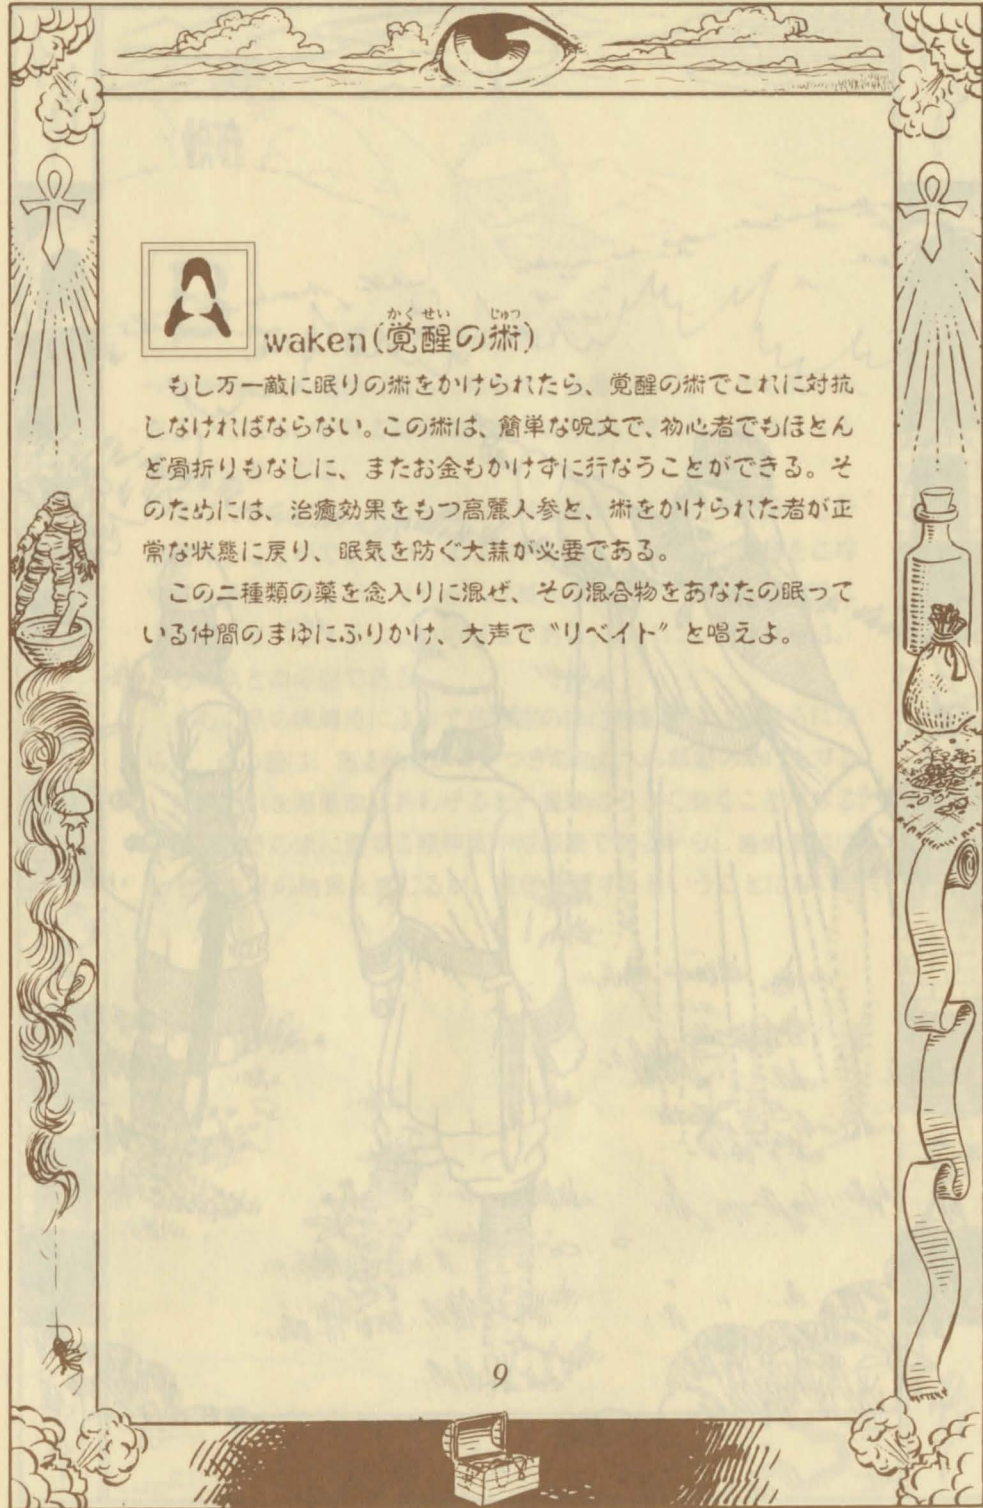 かくせい じゅつ
Awaken(覚醒の術)
もし万一敵に眠りの術をかけられたら、覚醒の術でこれに対抗
しなければならない。この術は、簡単な呪文で、初心者でもほとん
ど骨折りもなしに、またお金もかけずに行なうことができる。そ
のためには、治癒効果をもつ高麗人参と、術をかけられた者が正
常な状態に戻り、眠気を防ぐ大蒜が必要である。
この二種類の薬を念入りに混ぜ、その混合物をあなたの眠って
いる仲間のまゆにふりかけ、大声で〝リベイト〟と唱えよ。
9